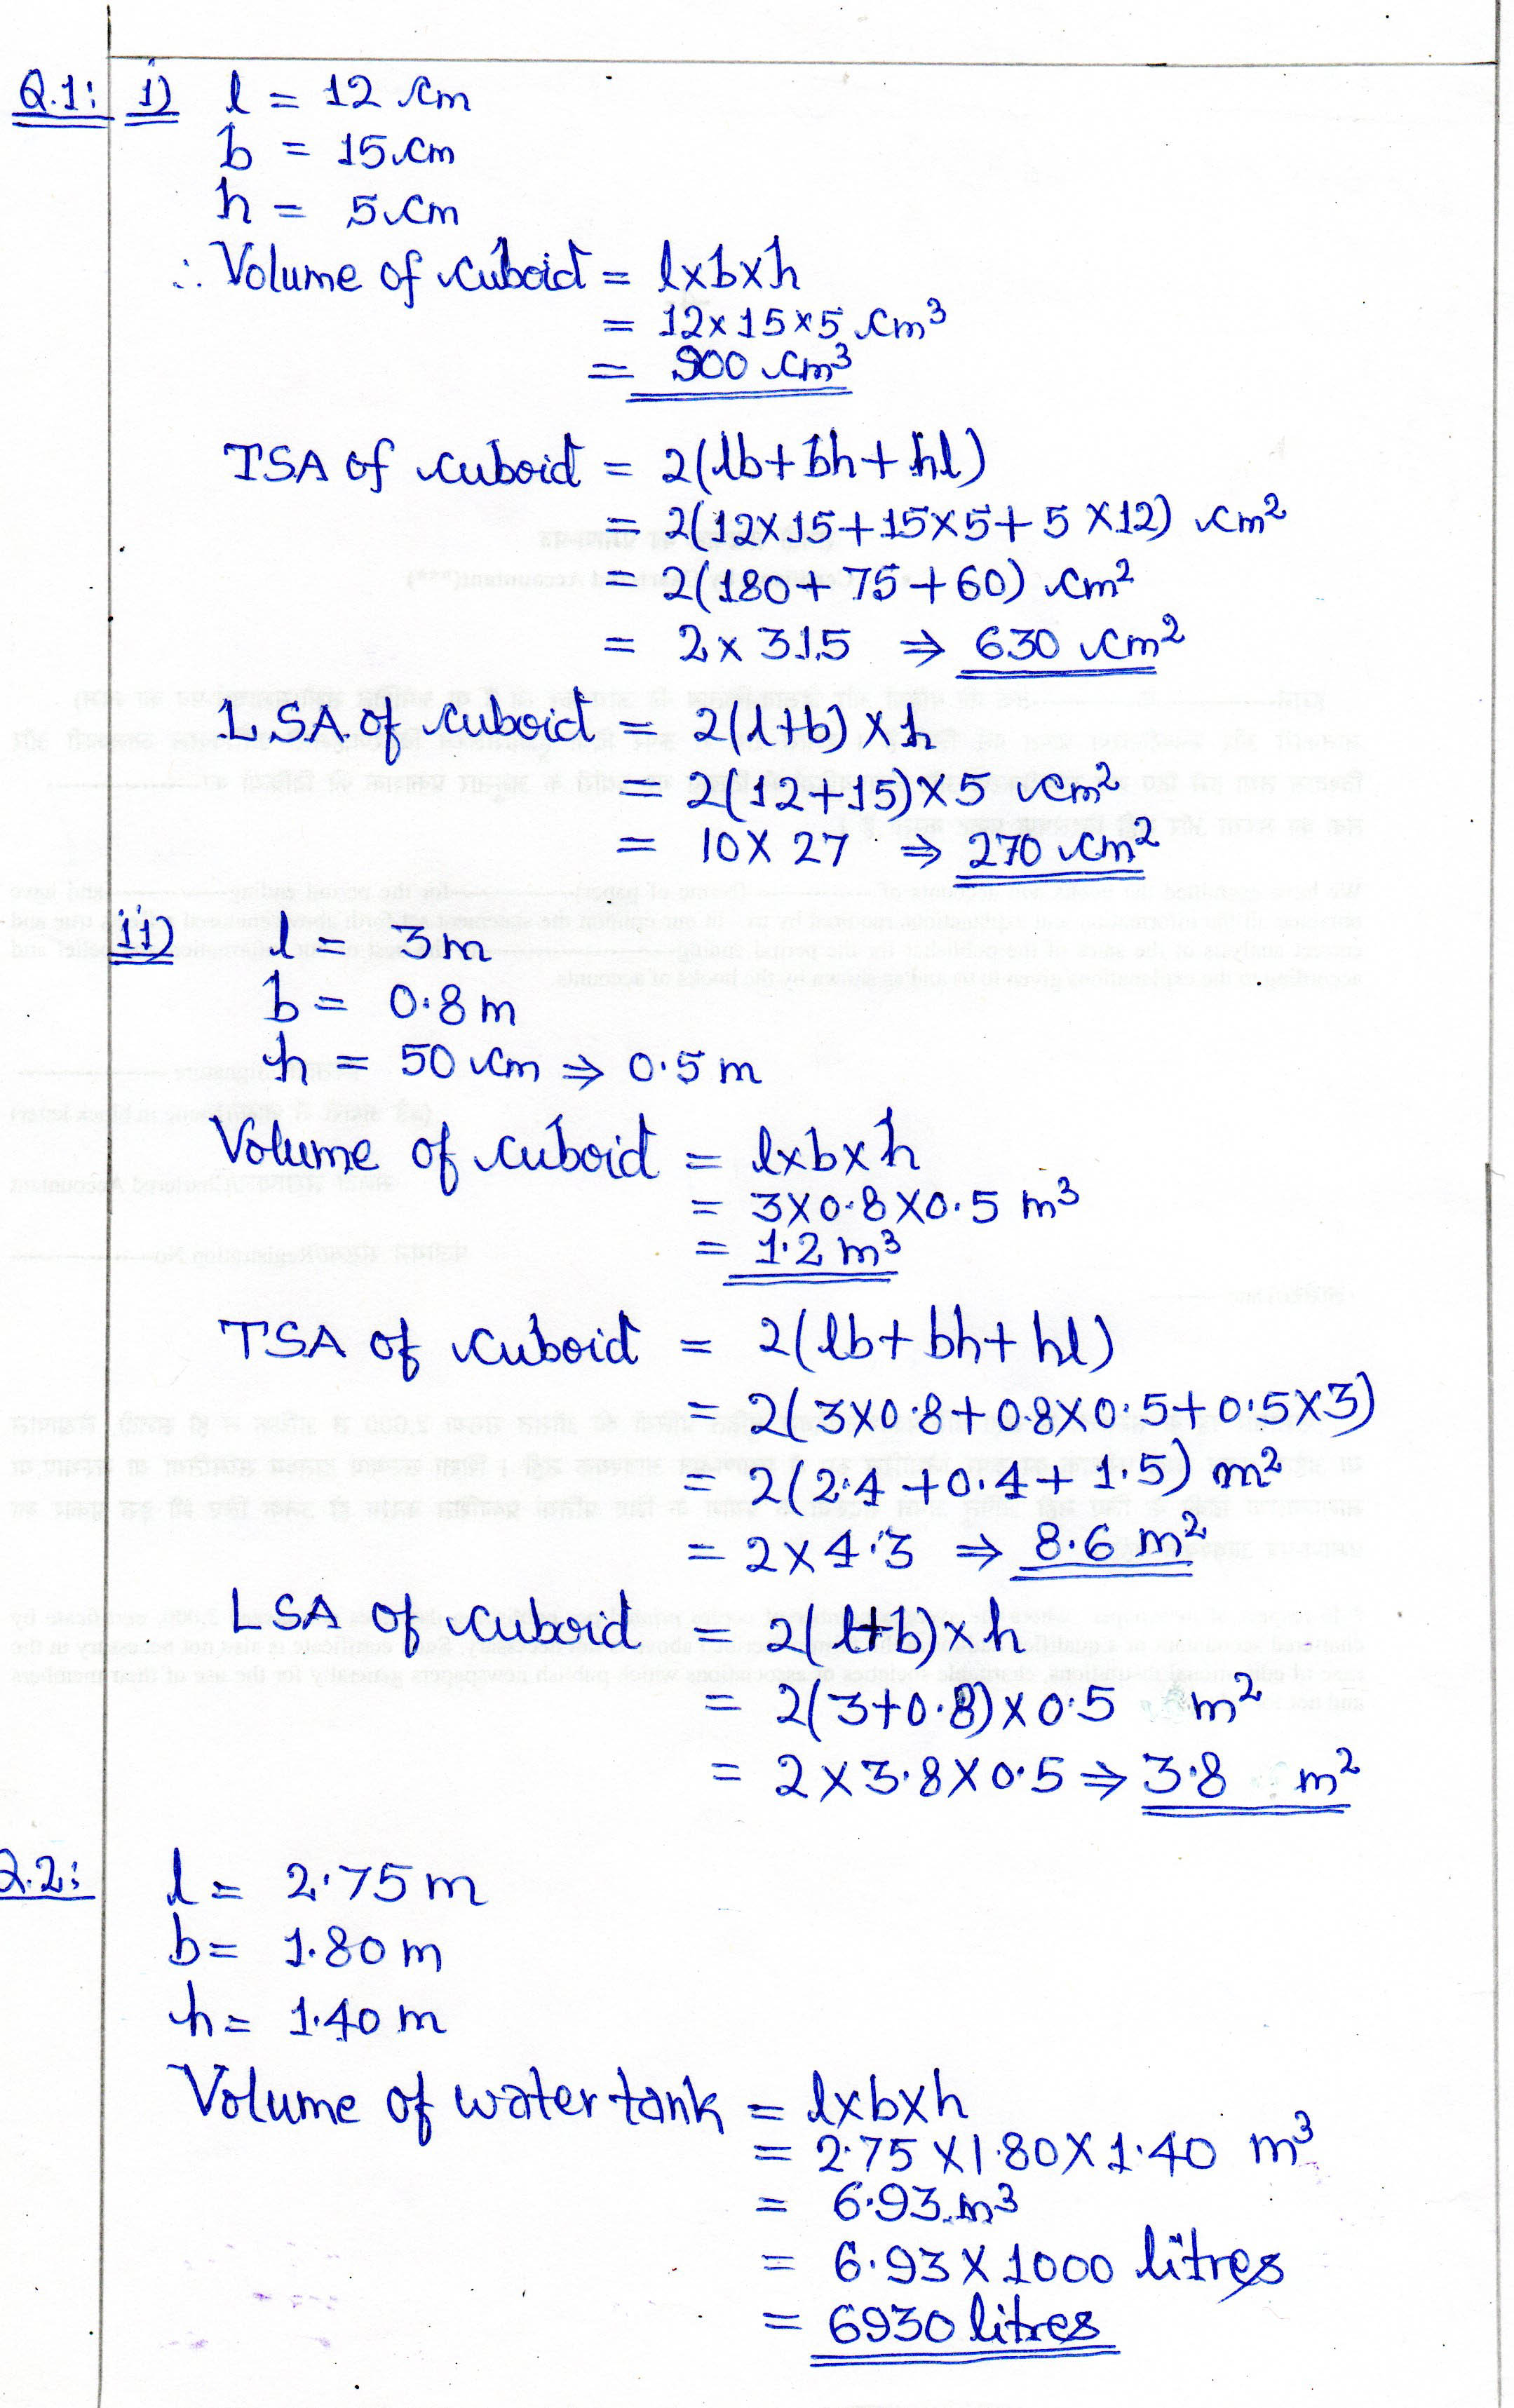 Q.1: i) l = 12 cm
b = 15 cm
h = 5 cm
∴ Volume of cuboid = l×b×h
= 12×15×5 cm³
= 900 cm³
TSA of cuboid = 2(lb+bh+hl)
= 2(12×15+15×5+5×12) cm²
= 2(180+75+60) cm²
= 2×315 ⇒ 630 cm²
LSA of cuboid = 2(l+b)×h
= 2(12+15)×5 cm²
= 10×27 ⇒ 270 cm²
ii) l = 3m
b = 0.8m
h = 50 cm ⇒ 0.5 m
Volume of cuboid = l×b×h
= 3×0.8×0.5 m³
= 1.2 m³
TSA of cuboid = 2(lb+bh+hl)
= 2(3×0.8+0.8×0.5+0.5×3)
= 2(2.4+0.4+1.5) m²
= 2×4.3 ⇒ 8.6 m²
LSA of cuboid = 2(l+b)×h
= 2(3+0.8)×0.5 m²
= 2×3.8×0.5 ⇒ 3.8 m²
Q.2: l = 2.75 m
b = 1.80 m
h = 1.40 m
Volume of water tank = l×b×h
= 2.75×1.80×1.40 m³
= 6.93 m³
= 6.93×1000 litres
= 6930 litres